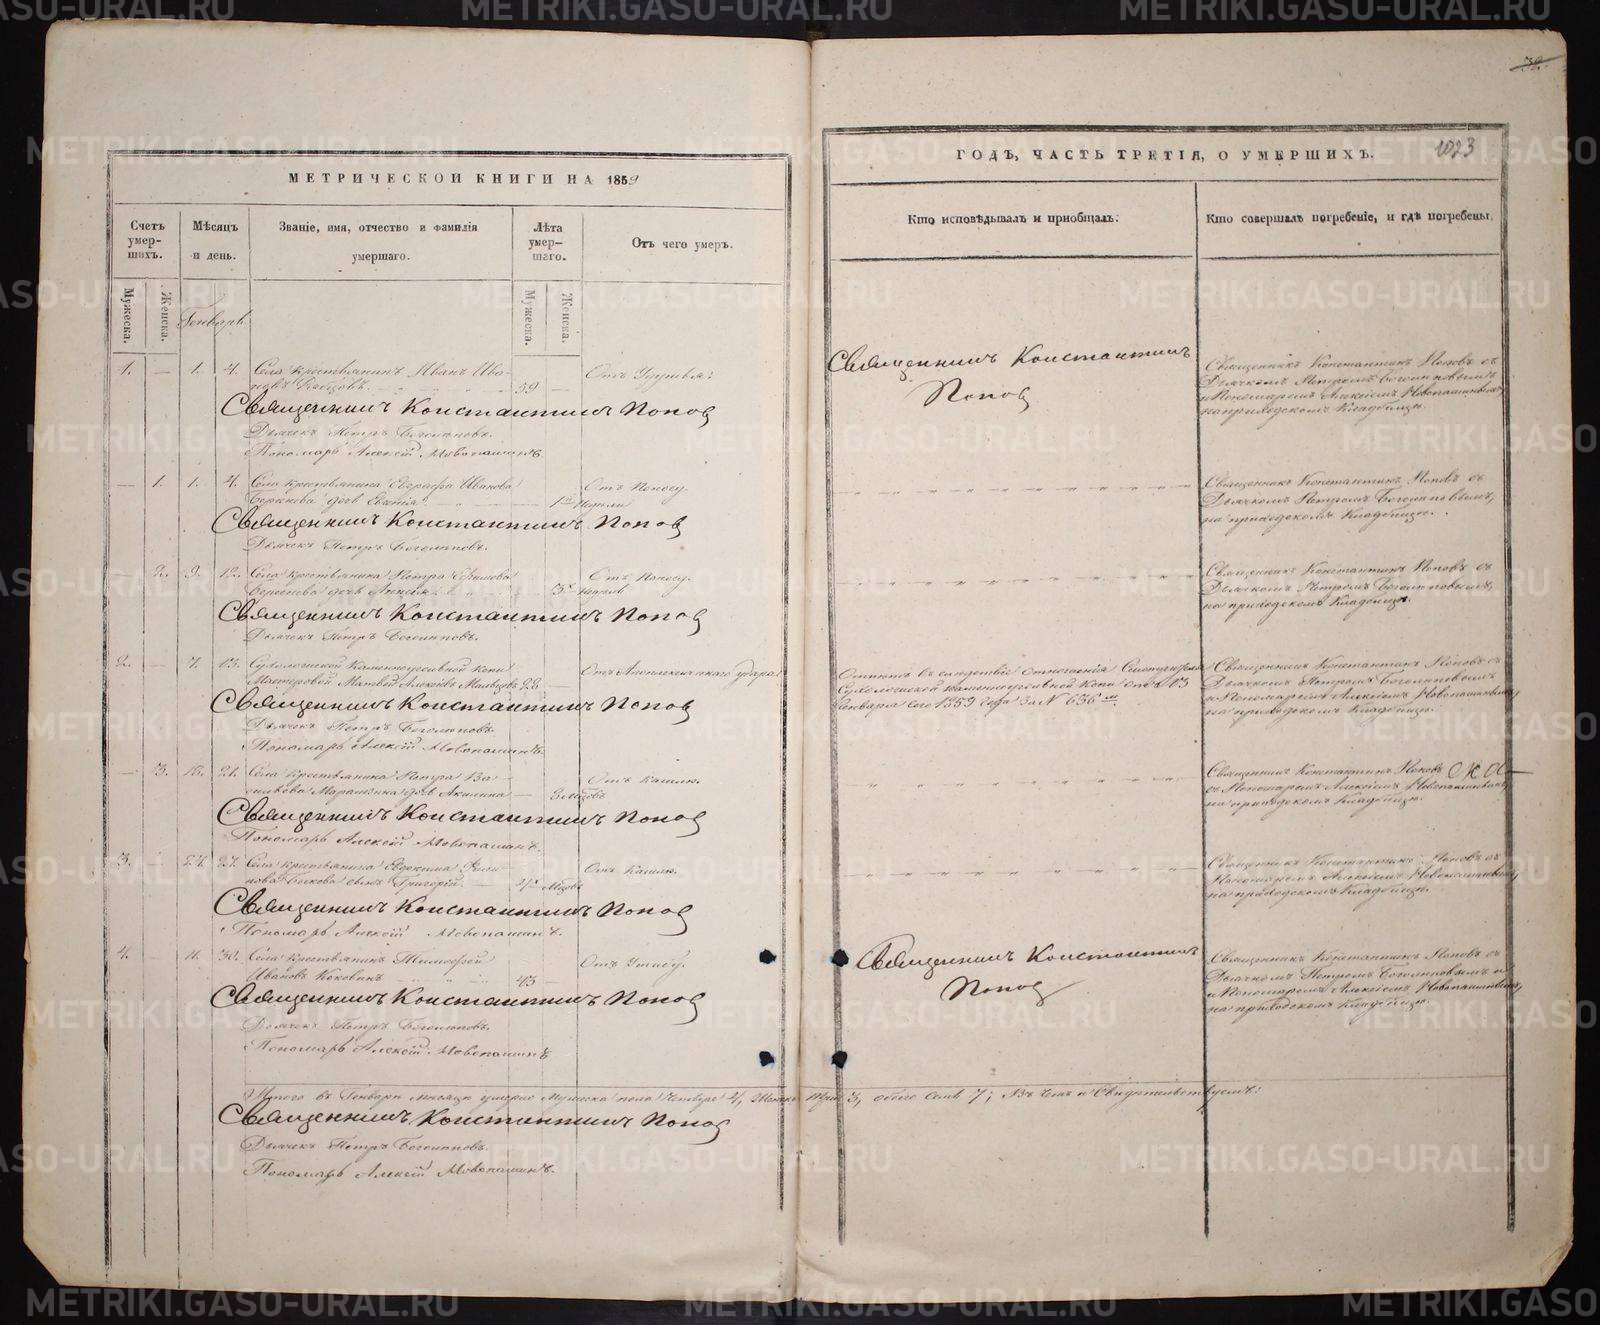 МЕТРИЧЕСКОЙ КНИГИ НА 1859
Счетъ умерших. Мѣсяцъ и день. Званіе, имя, отчество и фамилія умершаго. Лѣта умершаго. Отъ чего умеръ.
Мужеска. Женска. Мужеска. Женска.
Генварь
1. — 1. 4. Села крестьянинъ Иванъ Ива-
59 —
Священникъ Константинъ Попов
Дьячекъ Петръ Боголѣповъ.
Пономарь Алексѣй Новопашинъ.
— 1. 1. 4. Села крестьянина Евграфа Иванова
дочь Евгенія 1 Недѣли Отъ Поносу.
Священникъ Константинъ Попов
Дьячекъ Петръ Боголѣповъ.
2. 9. 12. Села крестьянина Петра
дочь 3 Недель Отъ Поносу.
Священникъ Константинъ Попов
Дьячекъ Петръ Боголѣповъ.
2. — 7. 13. Сухоложской Каменноугольной Копи
Мастеровой Матвей Алексѣевъ 28 — Отъ Апоплексическаго удара
Священникъ Константинъ Попов
Дьячекъ Петръ Боголѣповъ.
Пономарь Алексѣй Новопашинъ.
— 3. 18. 21. Села крестьянина Петра Ва-
сильева дочь Акилина — 3 Мѣсцовъ Отъ Кашлю.
Священникъ Константинъ Попов
Пономарь Алексѣй Новопашинъ.
3. 24. 27. Села крестьянина Евдокима
Быкова сынъ Григорій 4 Мѣсцовъ Отъ Кашлю.
Священникъ Константинъ Попов
Пономарь Алексѣй Новопашинъ.
4. 30. Села крестьянинъ Тимофей
Ивановъ Коковинъ 43 —
Священникъ Константинъ Попов
Дьячекъ Петръ Боголѣповъ.
Пономарь Алексѣй Новопашинъ
Итого въ Генварѣ мѣсяцѣ умерло Мужеска пола Четверо 4, Женска Три 3, обоего Семь 7; Въ чемъ и Свидѣтельствуемъ:
Священникъ Константинъ Попов
Дьячекъ Петръ Боголѣповъ.
Пономарь Алексѣй Новопашинъ.
32
ГОДЪ, ЧАСТЬ ТРЕТІЯ, О УМЕРШИХЪ. 1023
Кто исповѣдывалъ и пріобщалъ. Кто совершалъ погребеніе, и гдѣ погребены.
Священникъ Константинъ
Попов
Священникъ Константинъ Поповъ съ
Дьячкомъ Петромъ Боголѣповымъ
и Пономаремъ Алексѣемъ Новопашинымъ,
на приходскомъ Кладбищѣ.
Священникъ Константинъ Поповъ съ
Дьячкомъ Петромъ Боголѣповымъ,
на приходскомъ Кладбищѣ.
Священникъ Константинъ Поповъ съ
Дьячкомъ Петромъ Боголѣповымъ,
на приходскомъ Кладбищѣ.
Отпетъ въ следствіе отношенія Смотрителя
Сухоложской Каменноугольной Копи отъ 13
Генваря сего 1859 года за № 636
Священникъ Константинъ Поповъ съ
Дьячкомъ Петромъ Боголѣповымъ
и Пономаремъ Алексѣемъ Новопашинымъ,
на приходскомъ Кладбищѣ.
Священникъ Константинъ Поповъ
съ Пономаремъ Алексѣемъ Новопашинымъ,
на приходскомъ Кладбищѣ.
Священникъ Константинъ Поповъ съ
Пономаремъ Алексѣемъ Новопашинымъ,
на приходскомъ Кладбищѣ.
Священникъ Константинъ
Попов
Священникъ Константинъ Поповъ съ
Дьячкомъ Петромъ Боголѣповымъ и
и Пономаремъ Алексѣемъ Новопашинымъ,
на приходскомъ Кладбищѣ.
METRIKI.GASO-URAL.RU